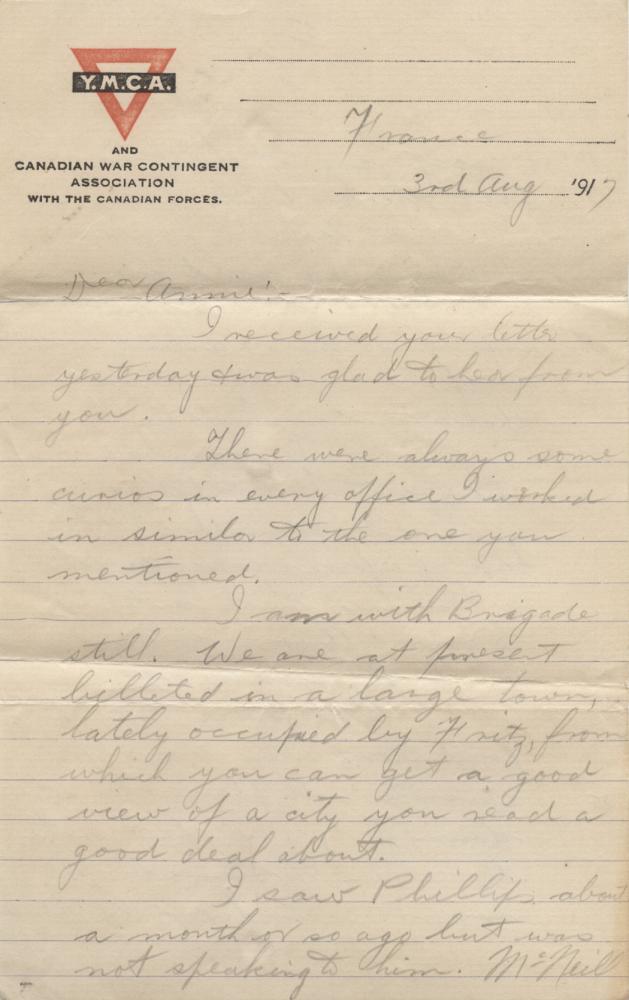 Y.M.C.A.
AND
CANADIAN WAR CONTINGENT
ASSOCIATION
WITH THE CANADIAN FORCES.
France
3rd Aug 1917
Dear Annie:-
I received your letter
yesterday & was glad to hear from
you.
There were always some
curios in every office I worked
in similar to the one you
mentioned.
I am with Brigade
still. We are at present
billeted in a large town,
lately occupied by Fritz, from
which you can get a good
view of a city you read a
good deal about.
I saw Phillip about
a month or so ago but was
not speaking to him. McNeill